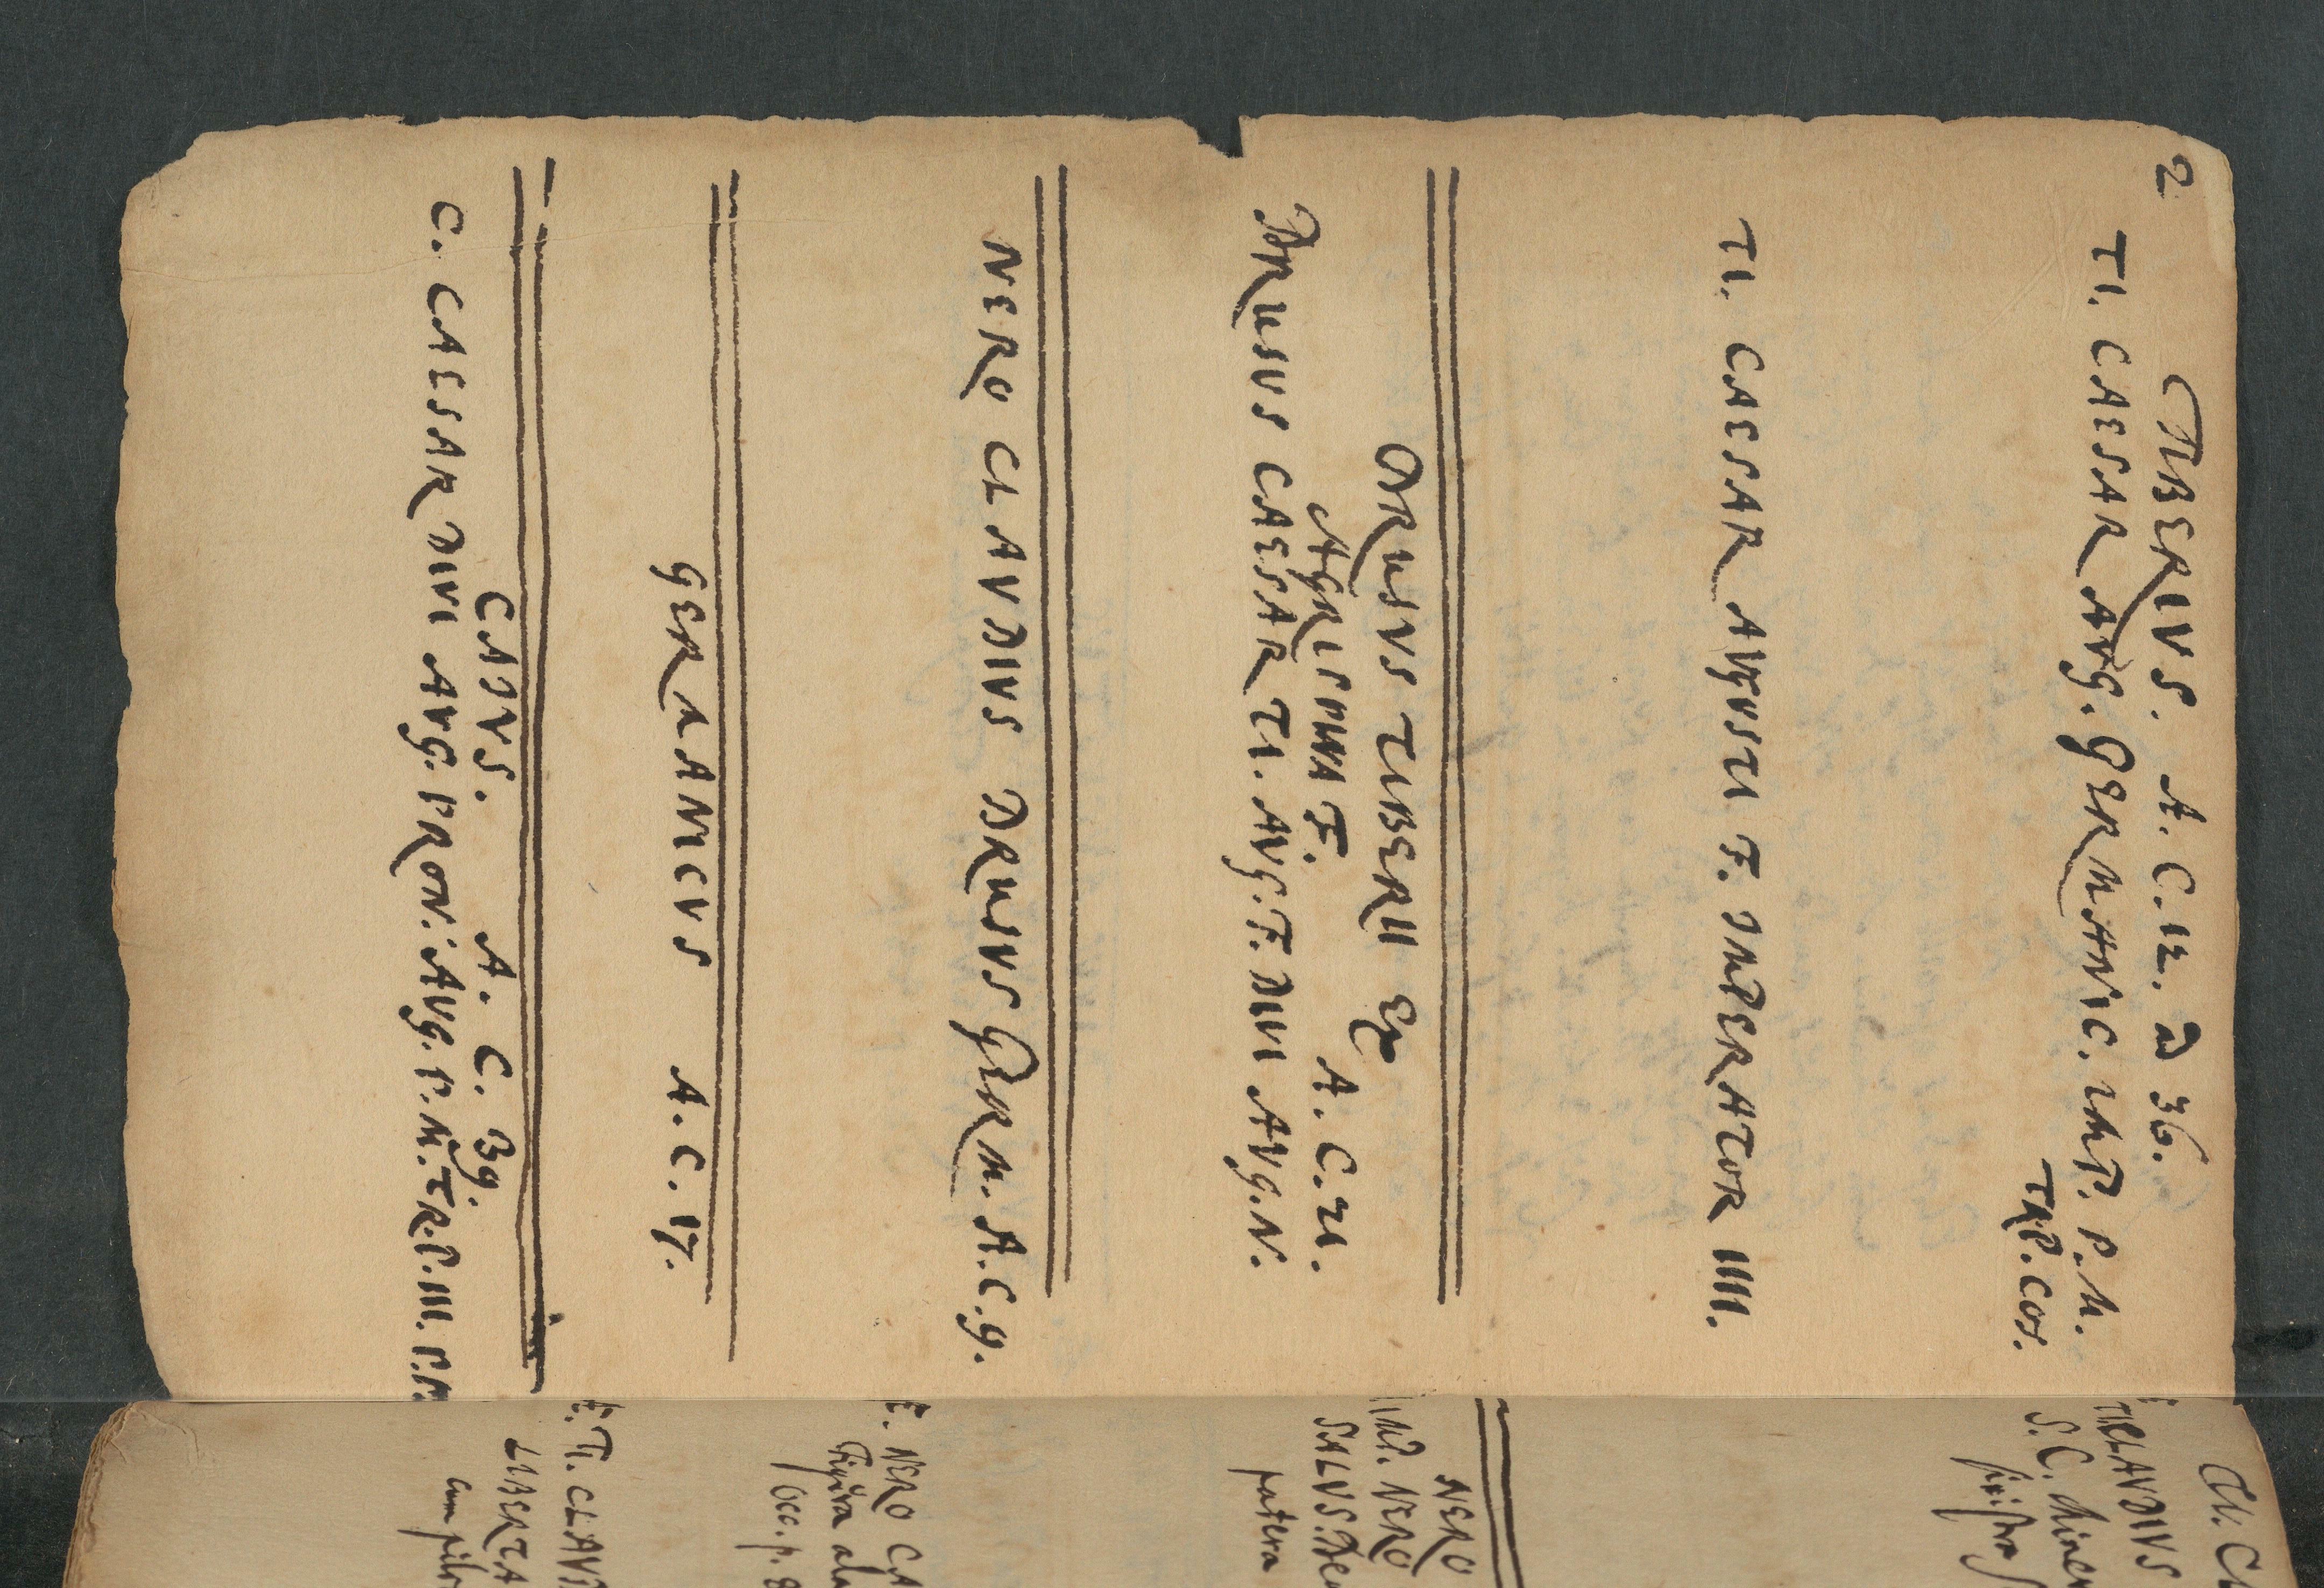 2
TIBERIVS. A. C. 12. ad 36.
TI. CAESAR AVG. GERMANIC. IMP. P. M.
TR.P. COS.
TI. CAESAR AVGVSTI F. IMPERATOR IIII.
DRUSVS TIBERII EX
AGRIPPINA F. A. C. 21.
DRUSUS CAESAR TI. AVG. F. DIVI AVG. N.
NERO CLAVDIUS DRUSVS GERM. A. C. 9.
GERMANICVS A. C. 17.
CAIVS. A. C. 39.
C. CAESAR DIVI AVG. PRON. AVG. P. M. TR. P. III. P. P.
TI. CLAVDIVS
S. C. Miner
NERO
IMP. NERO
SALVS.
patera
NERO CA
figura ala
TI. CLAVD
LIBERTA
cum pile